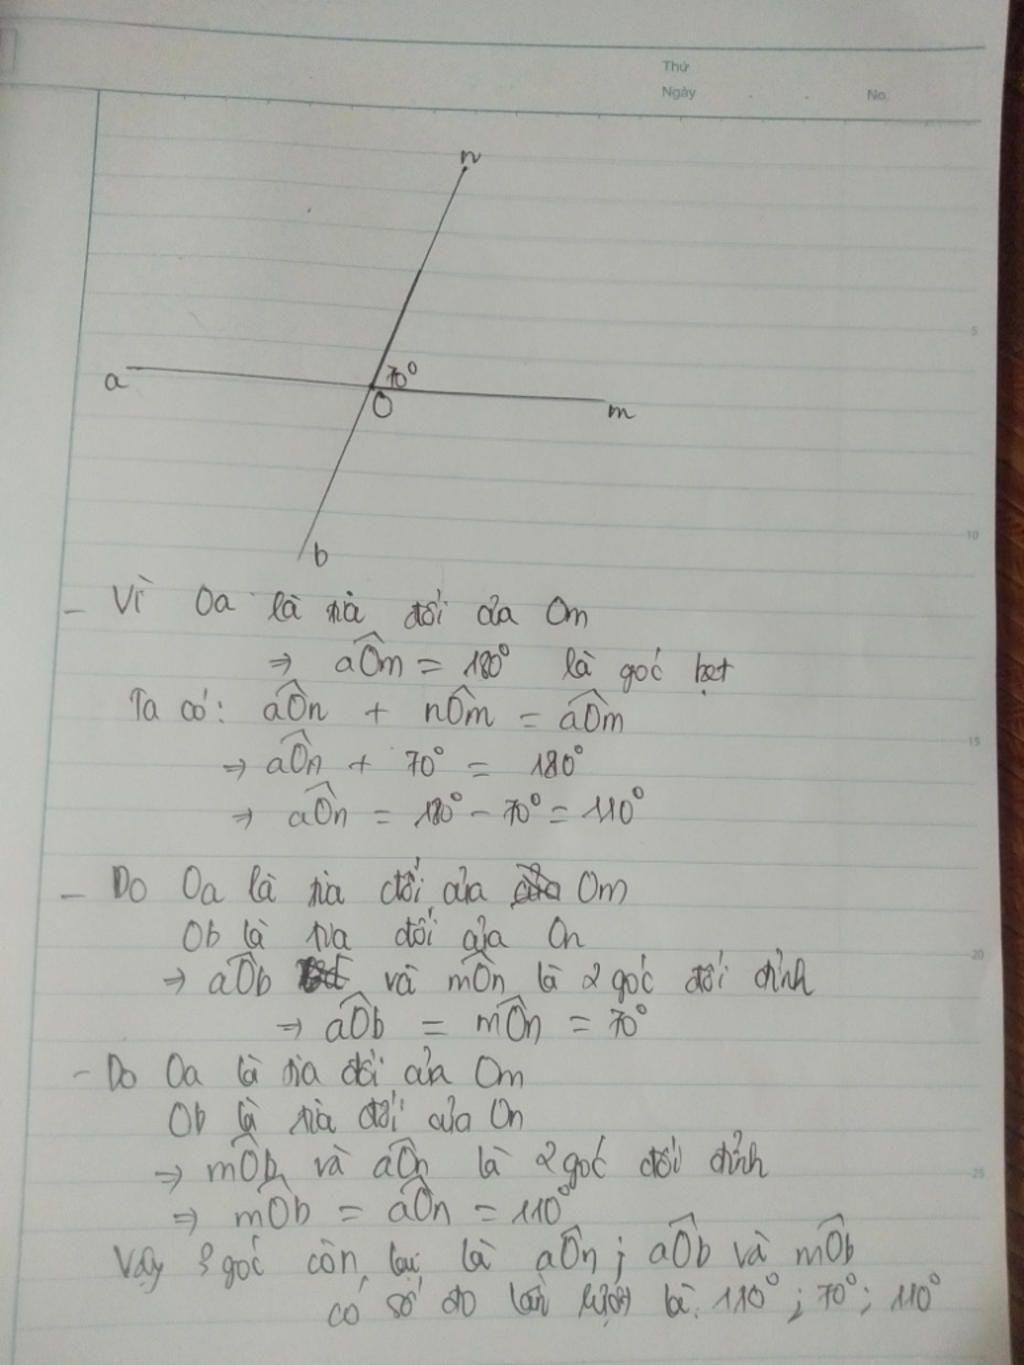 Thứ
Ngày . . No.
n
5
a 70° O m
10
b
- Vì Oa là tia đối của Om
⇒ aÔm = 180° là góc bẹt
Ta có: aÔn + nÔm = aÔm
15
⇒ aÔn + 70° = 180°
⇒ aÔn = 180° - 70° = 110°
- Do Oa là tia đối của Om
Ob là tia đối của On
20
⇒ aÔb và mÔn là 2 góc đối đỉnh
⇒ aÔb = mÔn = 70°
- Do Oa là tia đối của Om
Ob là tia đối của On
⇒ mÔb và aÔn là 2 góc đối đỉnh
25
⇒ mÔb = aÔn = 110°
Vậy 3 góc còn lại là aÔn ; aÔb và mÔb
có số đo lần lượt là: 110° ; 70° ; 110°